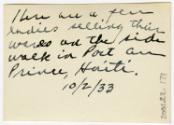 Here are a few
ladies selling their
wares on the side
walk in Port au
Prince, Haiti.
10/2/33